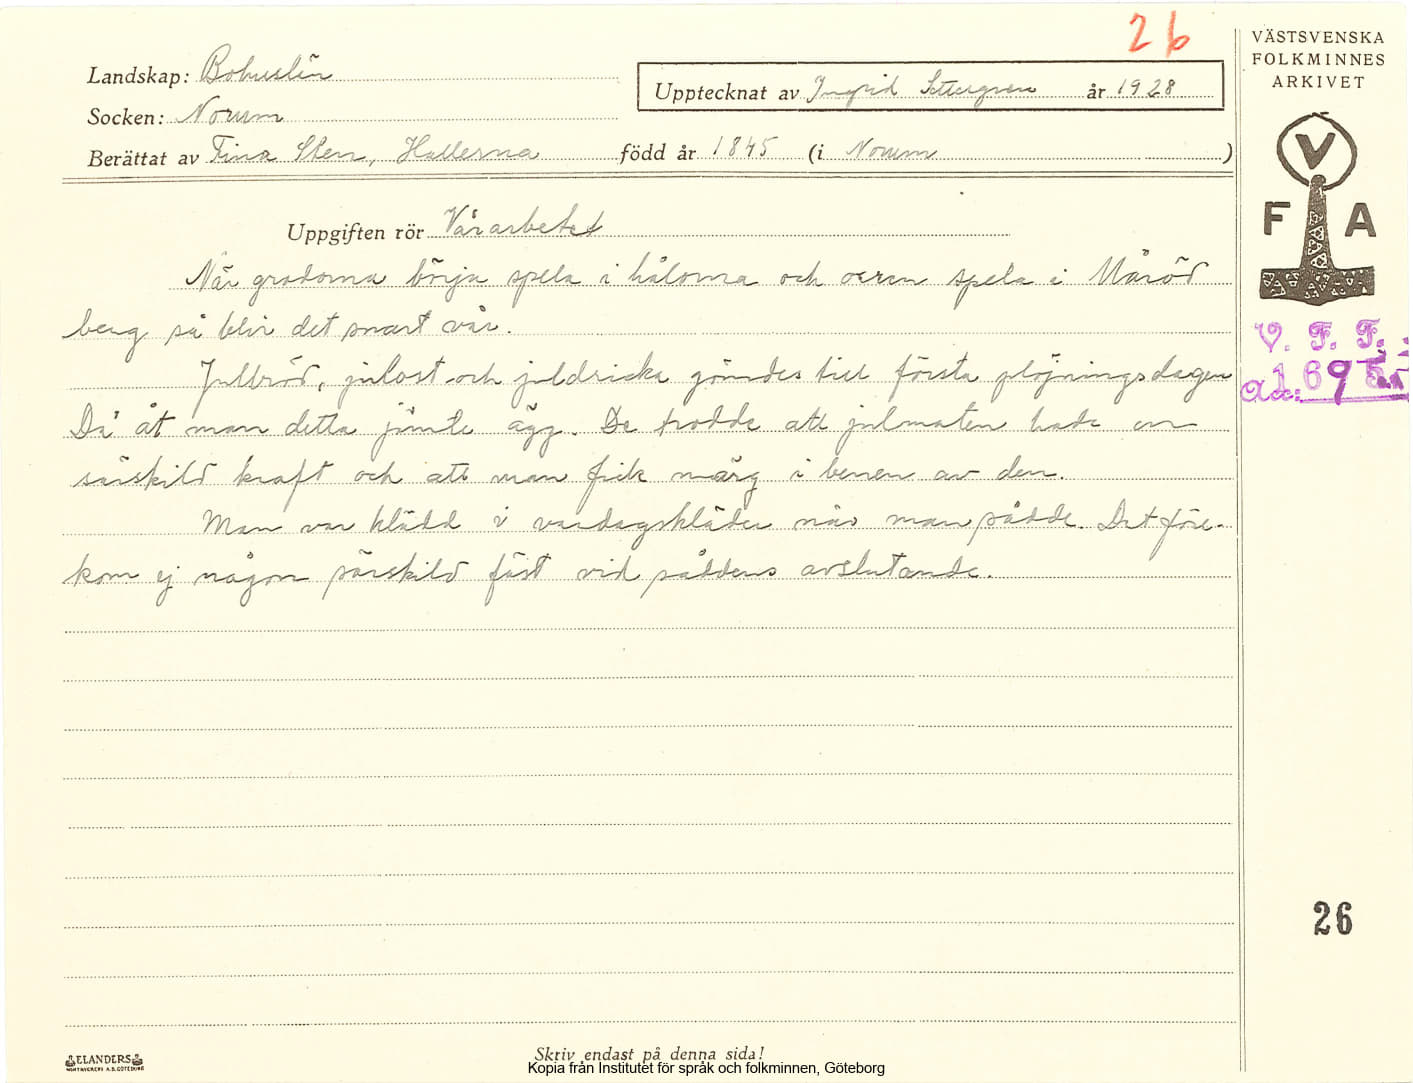 26
VÄSTSVENSKA
FOLKMINNES
ARKIVET
Landskap: Bohuslän
Upptecknat av Ingrid Settergren år 1928
Socken: Norum
Berättat av Tina Sten, Hallerna född år 1845 (i Norum )
V
F A
Uppgiften rör Vårarbetet
När grodorna börja spela i hålorna och orren spela i Måröd
berg så blir det snart vår.
V. F. F.
Julbröd, julost och juldricka gömdes till första plöjningsdagen
Då åt man detta jämte ägg. De trodde att julmaten hade en
särskild kraft och att man fick märg i benen av den.
Man var klädd i vardagskläder när man sådde. Det före-
kom ej någon särskild fäst vid såddens avslutande.
26
ELANDERS
Skriv endast på denna sida!
Kopia från Institutet för språk och folkminnen, Göteborg